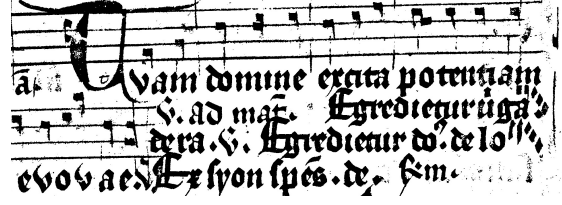 ā Tuam domine excita potentiam
V. ad mat̄. Egredietur uirga
de ra. V. Egredietur do. de lo
evovae. V. Ex syon spēs. de.